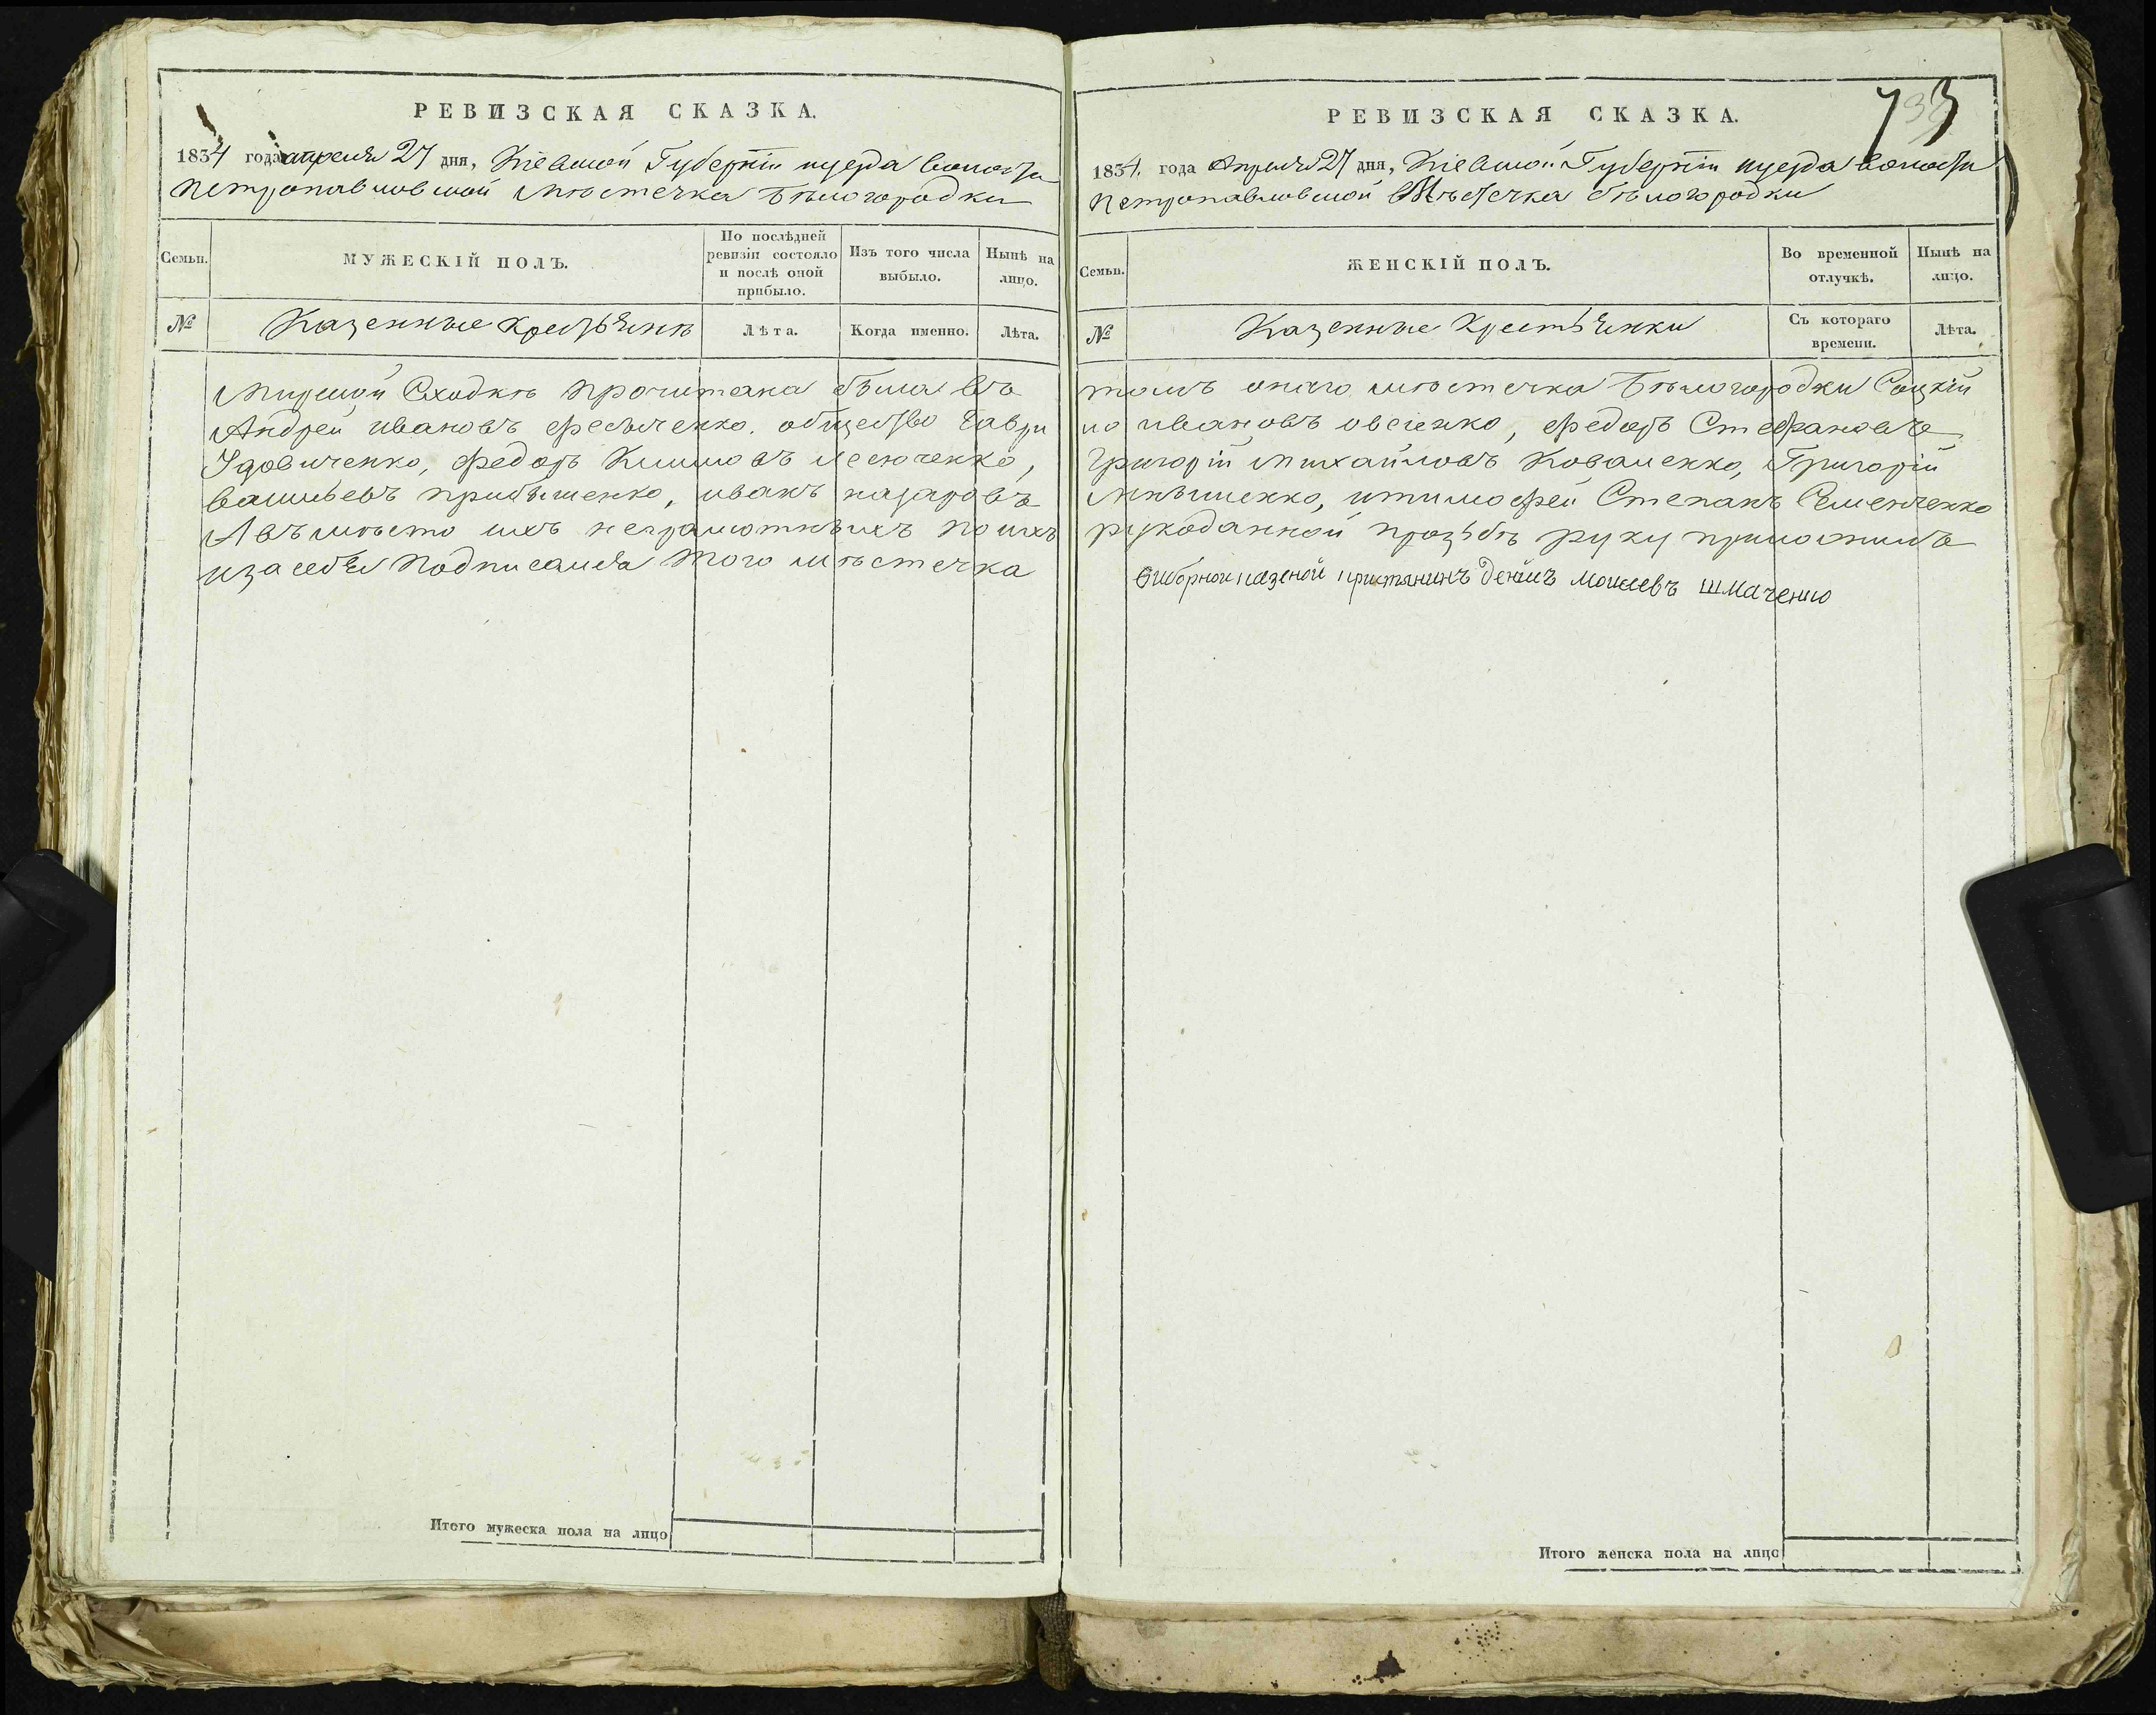 РЕВИЗСКАЯ СКАЗКА.
1834 года апреля 27 дня, Кіевской Губерніи иуезда волости
петропавловской местечка Бѣлогородки
Семьи.
МУЖЕСКІЙ ПОЛЪ.
По послѣдней ревизіи состояло и послѣ оной прибыло.
Изъ того числа выбыло.
Нынѣ на лицо.
№
Казенные крестьяне
Лѣта.
Когда именно.
Лѣта.
мирской Сходкѣ прочитана была въ
Андрей ивановъ фесѣченко. общество Гаври
Удовиченко, федоръ Климовъ
васильевъ прибышенко, иванъ назаровъ
Авъмѣсто ихъ неграмотныхъ по ихъ
изасебя подписался того мѣстечка
Итого мужеска пола на лицо
РЕВИЗСКАЯ СКАЗКА.
733
1834. года апреля 27 дня, Кіевской Губерніи иуезда волости
петропавловской Мѣстечка бѣлогородки
Семьи.
ЖЕНСКІЙ ПОЛЪ.
Во временной отлучкѣ.
Нынѣ на лицо.
№
Казенные Крестьянки
Съ котораго времени.
Лѣта.
томъ онаго мѣстечка Бѣлогородки Соцкій
ло ивановъ овсіенко, федоръ Стефановъ
Григорій михайловъ Коваленко, Григорій
итимофей Степанъ Семенченко
рукоданной прозьбѣ руку приложилъ
казеной Денисъ моисеевъ шмаченко
Итого женска пола на лицо